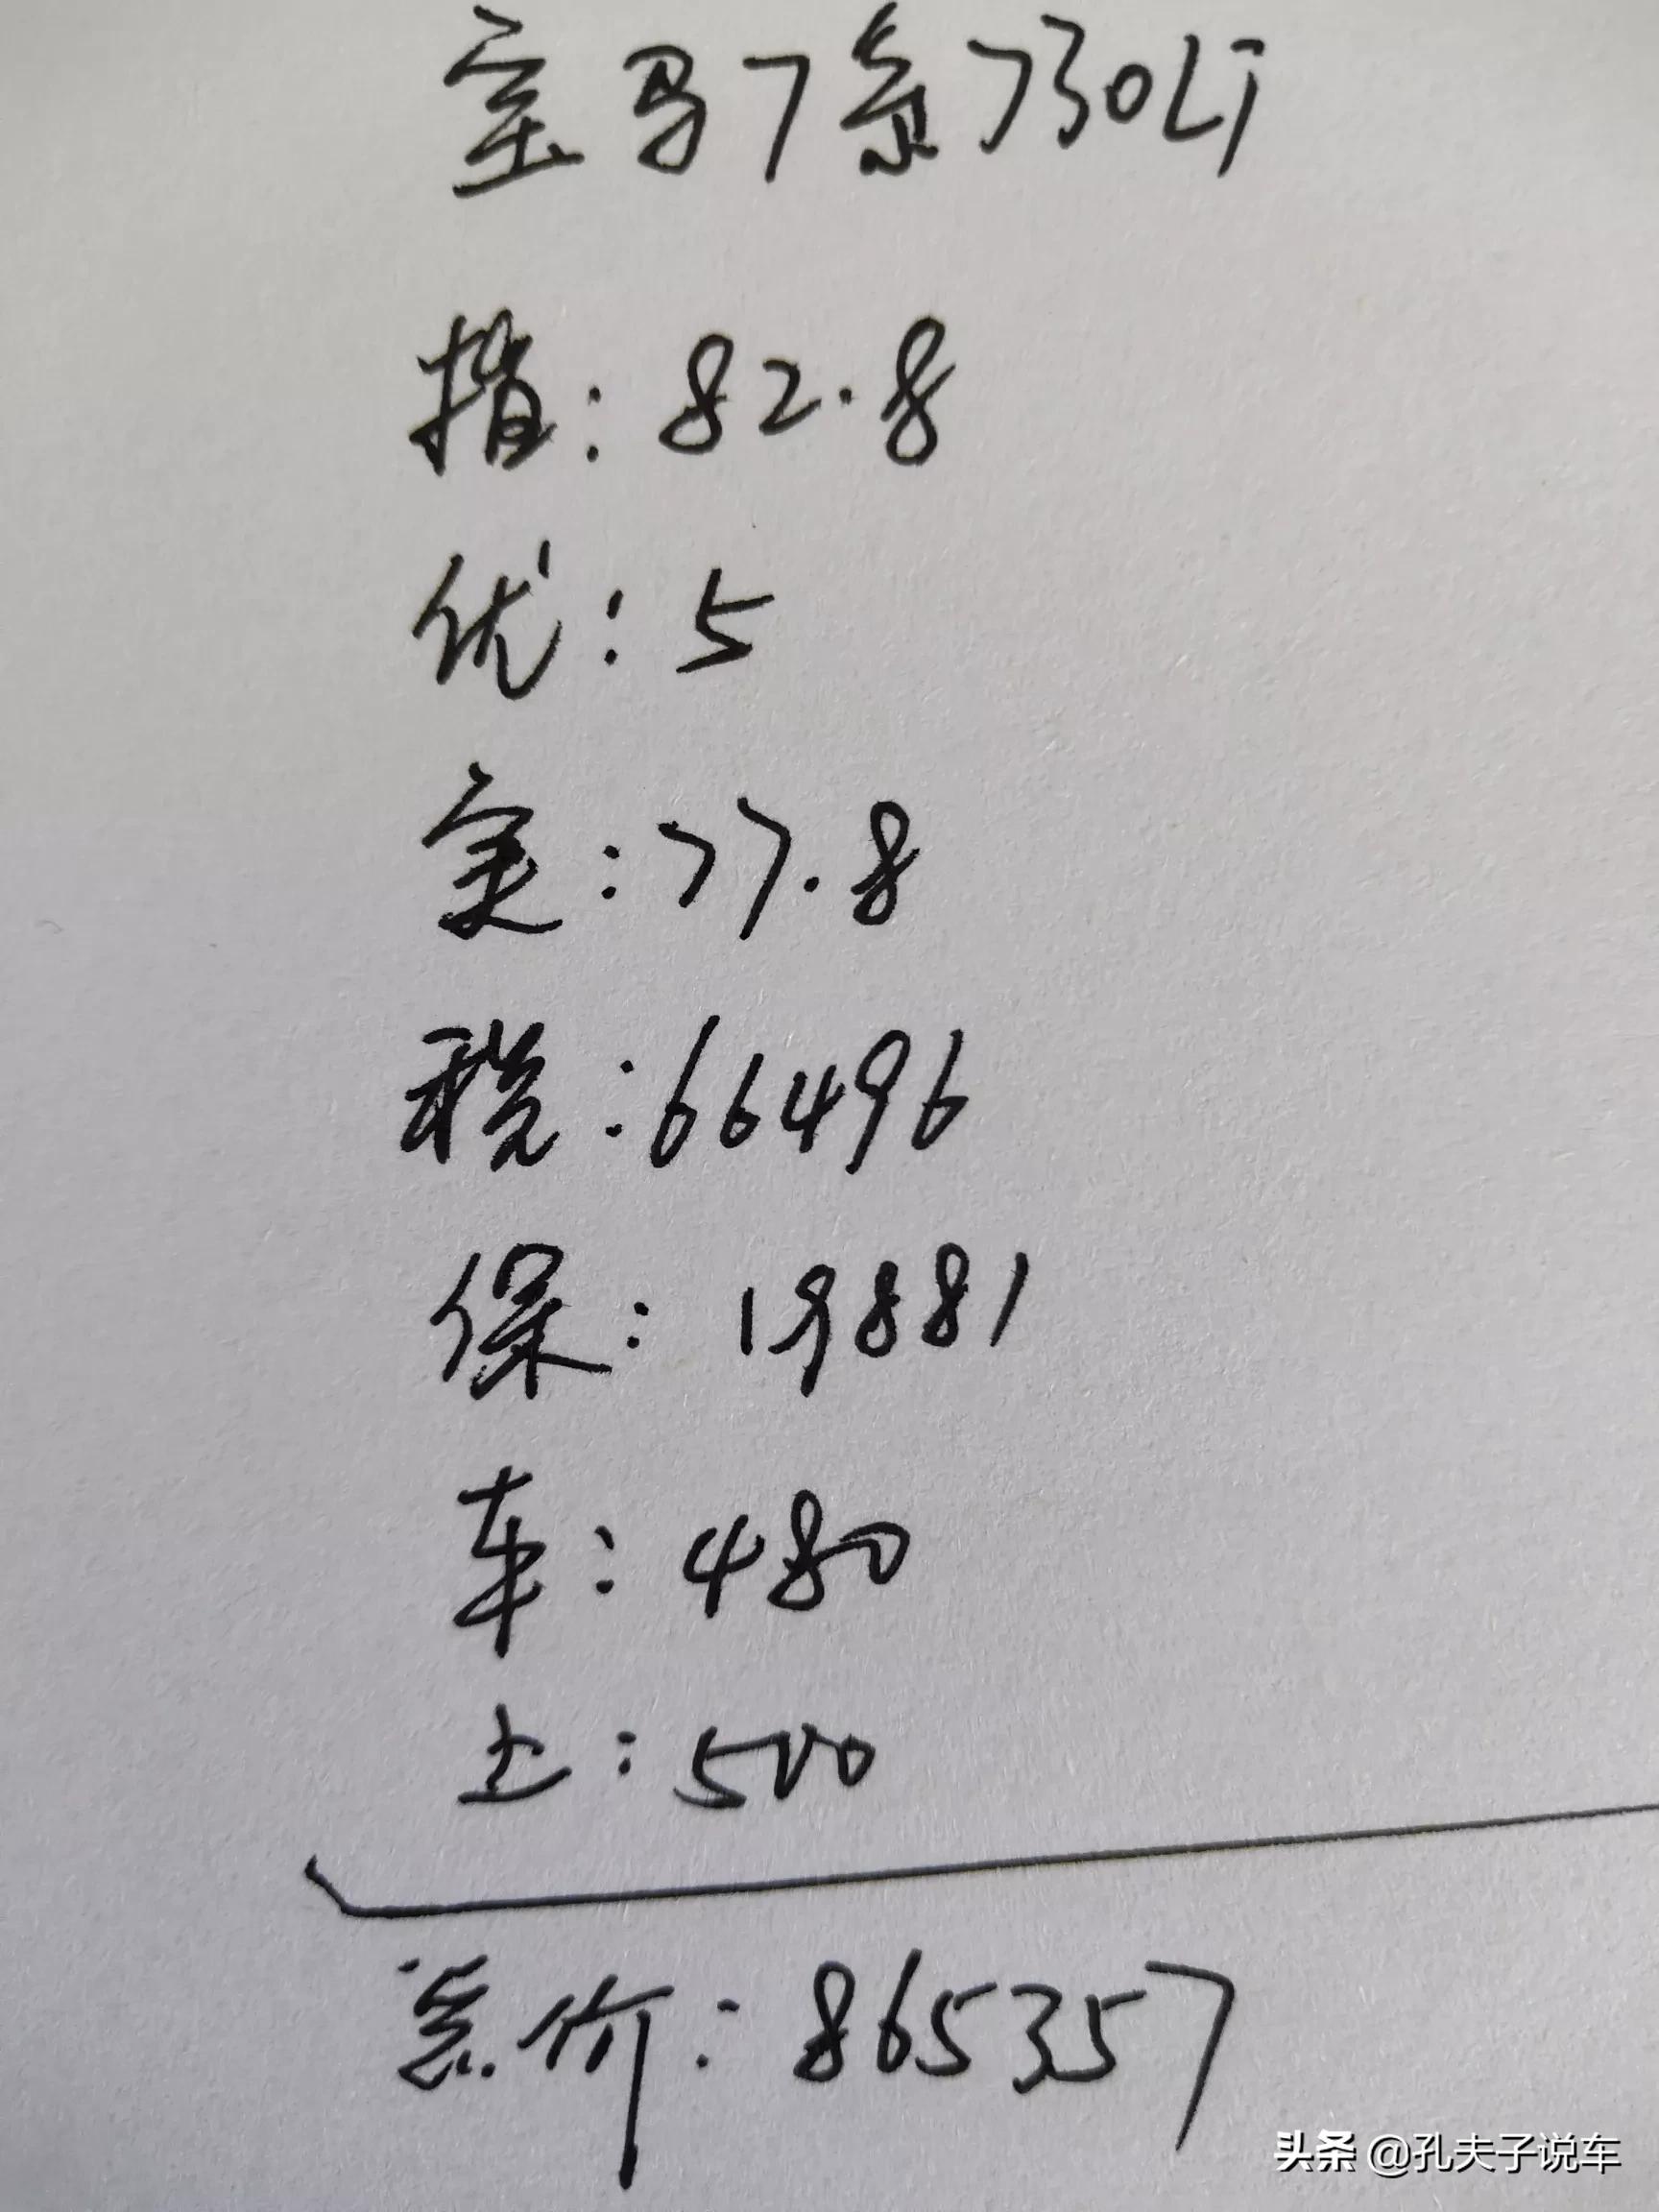 宝马7系730Li
指:82.8
优:5
实:77.8
税:66496
保:19881
车:480
上:500
总价:865357
头条 @孔夫子说车